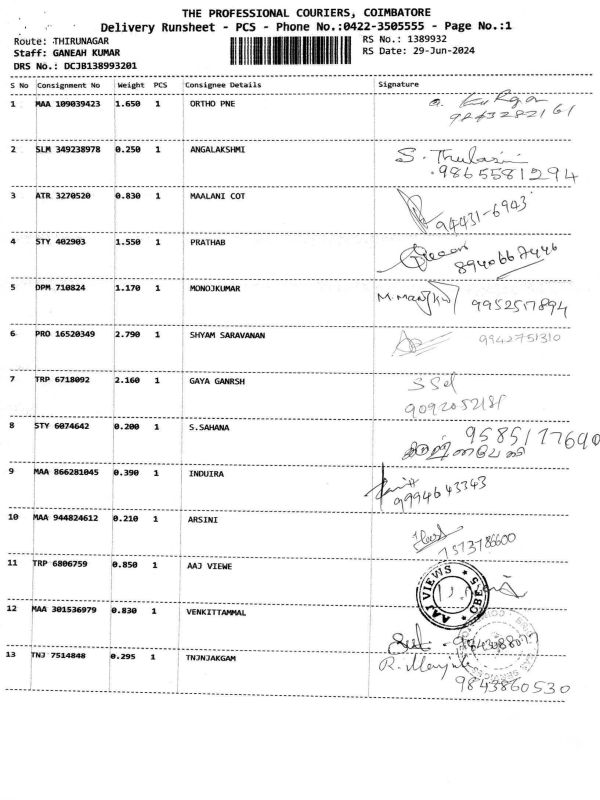 THE PROFESSIONAL COURIERS, COIMBATORE
Delivery Runsheet - PCS - Phone No.:0422-3505555 - Page No.:1
Route: THIRUNAGAR RS No.: 1389932
Staff: GANEAH KUMAR RS Date: 29-Jun-2024
DRS No.: DCJB138993201
S No Consignment No Weight PCS Consignee Details Signature
1 MAA 109039423 1.650 1 ORTHO PNE
9843282161
2 SLM 349238978 0.250 1 ANGALAKSHMI S. Thulasi
9865581294
3 ATR 3270520 0.830 1 MAALANI COT
94431-6943
4 STY 402903 1.550 1 PRATHAB
8940667446
5 DPM 710824 1.170 1 MONOJKUMAR M. Manoj 9952517894
6 PRO 16520349 2.790 1 SHYAM SARAVANAN 9942751310
7 TRP 6718092 2.160 1 GAYA GANRSH SSel
9092052181
8 STY 6074642 0.200 1 S.SAHANA 9585177690
9 MAA 866281045 0.390 1 INDUIRA
9994643343
10 MAA 944824612 0.210 1 ARSINI
7373786600
11 TRP 6806759 0.850 1 AAJ VIEWE
AAJ VIEWS CBE
12 MAA 301536979 0.830 1 VENKITTAMMAL
13 TNJ 7514848 0.295 1 TNJNJAKGAM R.
9843860530